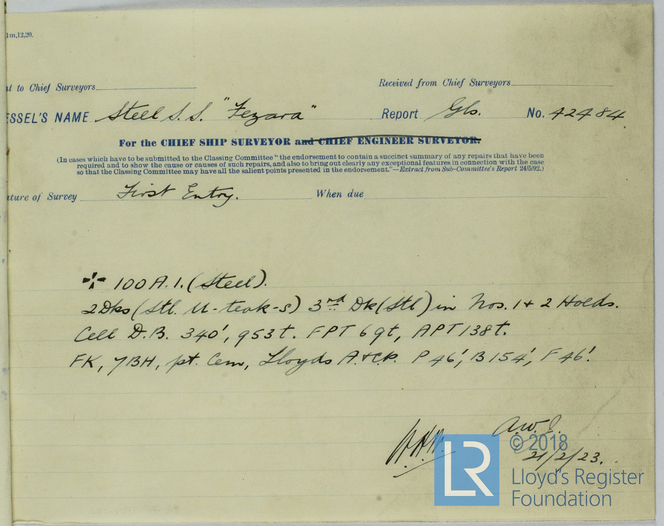 1m,12,20.
nt to Chief Surveyors
Received from Chief Surveyors
ESSEL'S NAME Steel S.S. "Fezara" Report Gls. No. 42484
For the CHIEF SHIP SURVEYOR and CHIEF ENGINEER SURVEYOR.
(In cases which have to be submitted to the Classing Committee "the endorsement to contain a succinct summary of any repairs that have been
required and to show the cause or causes of such repairs, and also to bring out clearly any exceptional features in connection with the case
so that the Classing Committee may have all the salient points presented in the endorsement."—Extract from Sub-Committee's Report 24/5/92.)
ature of Survey First Entry. When due
100A.1. (Steel).
2 Dks (Stl. U-teak-s) 3rd Dk (Stl) in Nos. 1 & 2 Holds.
Cell D.B. 340', 953t. FPT 69t, APT 138t.
FK, 7BH, pt. Cem, Lloyds A.&C.P. P 46', B 154', F 46'.
21/2/23.
LR
© 2018
Lloyd's Register
Foundation